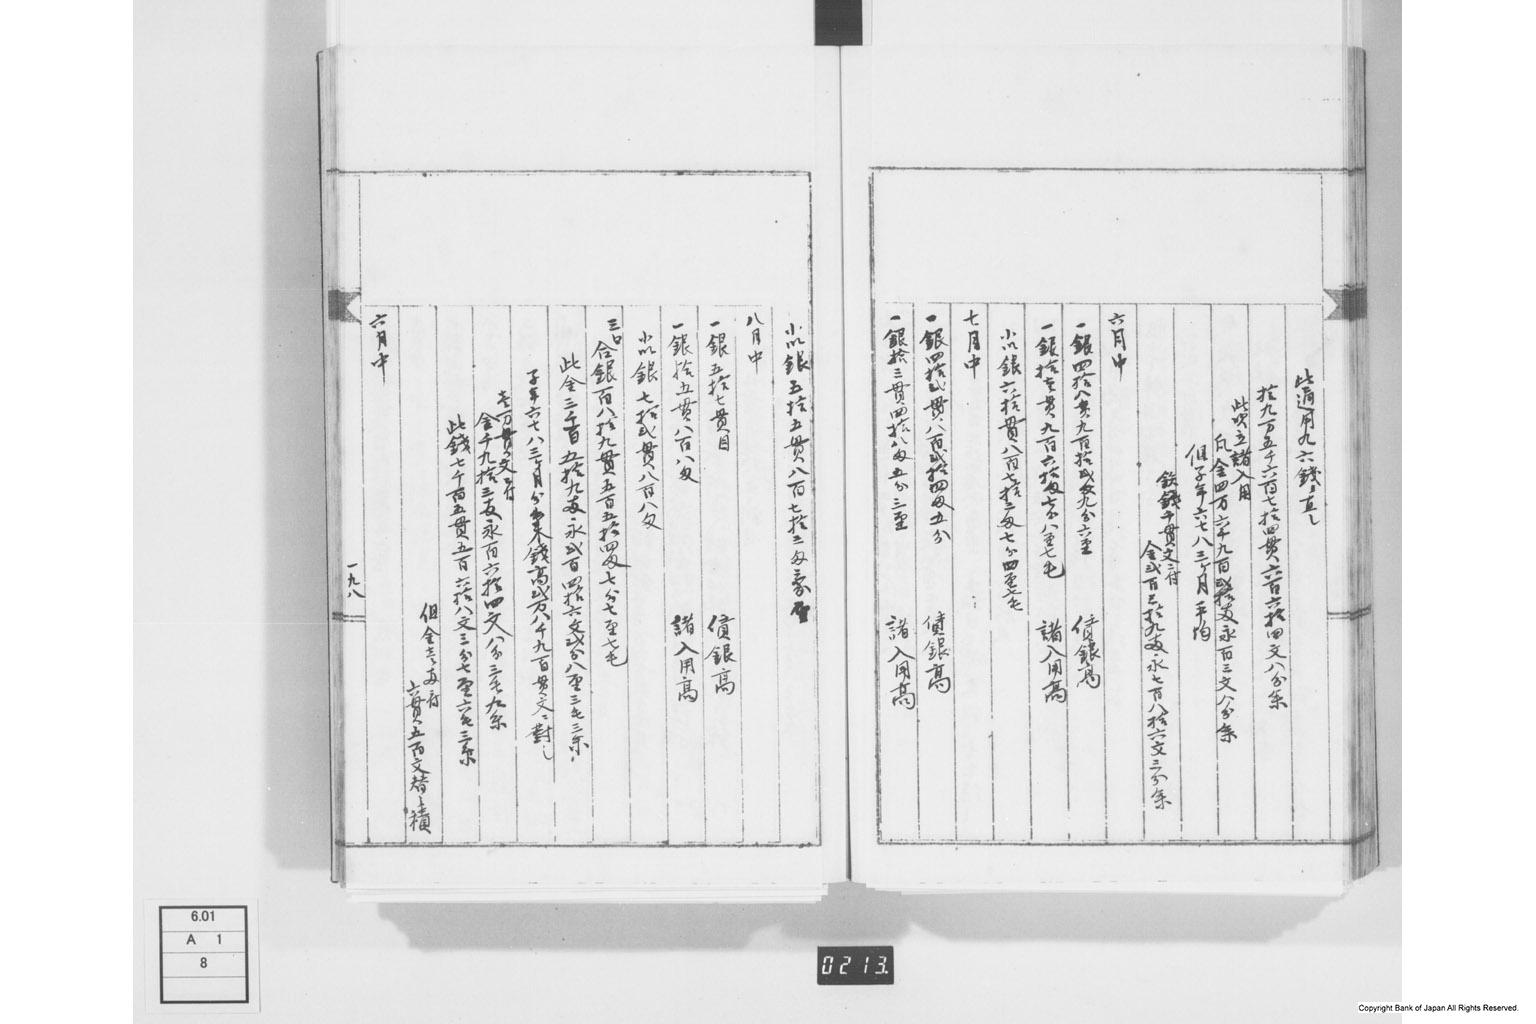 此通用九六錢ニ直し
拾九万五千六百七拾四貫六百六拾四文八分余
此吹立諸入用
凡金四万六千九百弐拾両永百三文八分余
但子年六七八三ヶ月平均
鉄錢千貫文ニ付
金弐百三拾九両永七百八拾六文三分余
六月中
一銀四拾八貫九百拾弐匁九分六厘 償銀高
一銀拾壱貫九百六拾匁七分八厘七毛 諸入用高
小以銀六拾貫八百七拾三匁七分四厘七毛
七月中
一銀四拾弐貫八百弐拾四匁五分 償銀高
一銀拾三貫四拾八匁五分三厘 諸入用高
小以銀五拾五貫八百七拾三匁三厘
八月中
一銀五拾七貫目 償銀高
一銀拾五貫八百八匁 諸入用高
小以銀七拾弐貫八百八匁
三口
合銀百八拾九貫五百五拾四匁七分七厘七毛
此金三千百五拾九両永弐百四拾六文弐分八厘三毛三糸
子年六七八三ヶ月分出来錢高弐万八千九百貫文ニ對し
壱万貫文ニ付
金千九拾三両永百六拾四文八分三毛九糸
此錢七千百五貫五百六拾八文三分七厘六毛三糸
但金壱両ニ付
六貫五百文替ニ積
六月中
一九八
6.01
A 1
8
0213.
Copyright Bank of Japan All Rights Reserved.